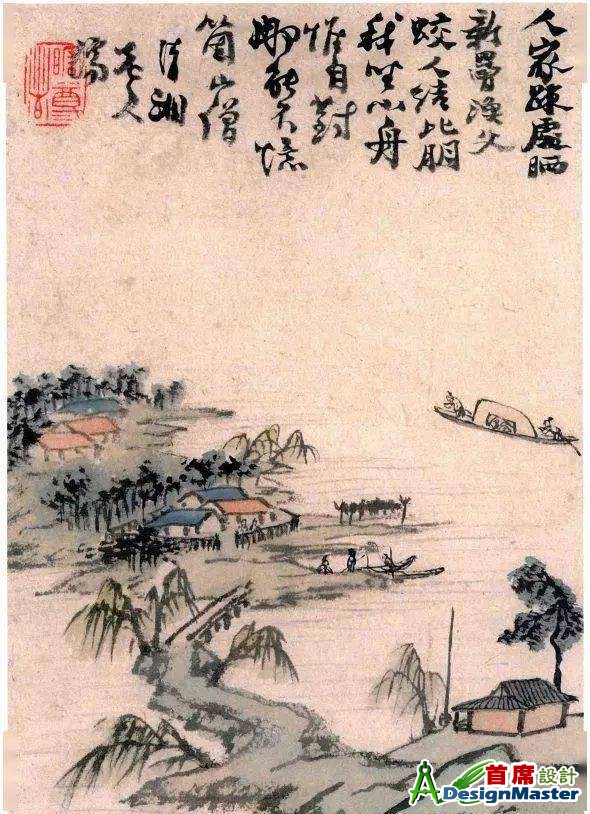 人家疎處晒
新罾漁父
蛟人結比朋
我坐小舟
惟自對
那能不憶
箇山僧
清湘
老人
濟
首席設計
DesignMaster